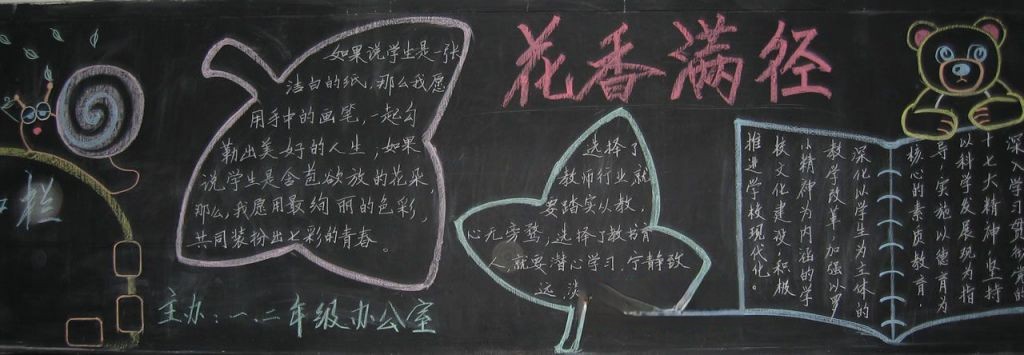 栏
如果说学生是一张
洁白的纸,那么我愿
用手中的画笔,一起勾
勒出美好的人生,如果
说学生是含苞欲放的花朵,
那么,我愿用最绚丽的色彩,
共同装扮出七彩的青春。
主办:一、二年级办公室
花香满径
选择了
教师行业就
要踏实从教,
心无旁骛,选择了教书育
人,就要潜心学习,宁静致
远。
深入学习贯彻党的
十七大精神,坚持
以科学发展观为指
导,实施以德育为
核心的素质教育
深化以学生为主体的
教学改革,加强以罗
小精神为内涵的学
校文化建设,积极
推进学校现代化。